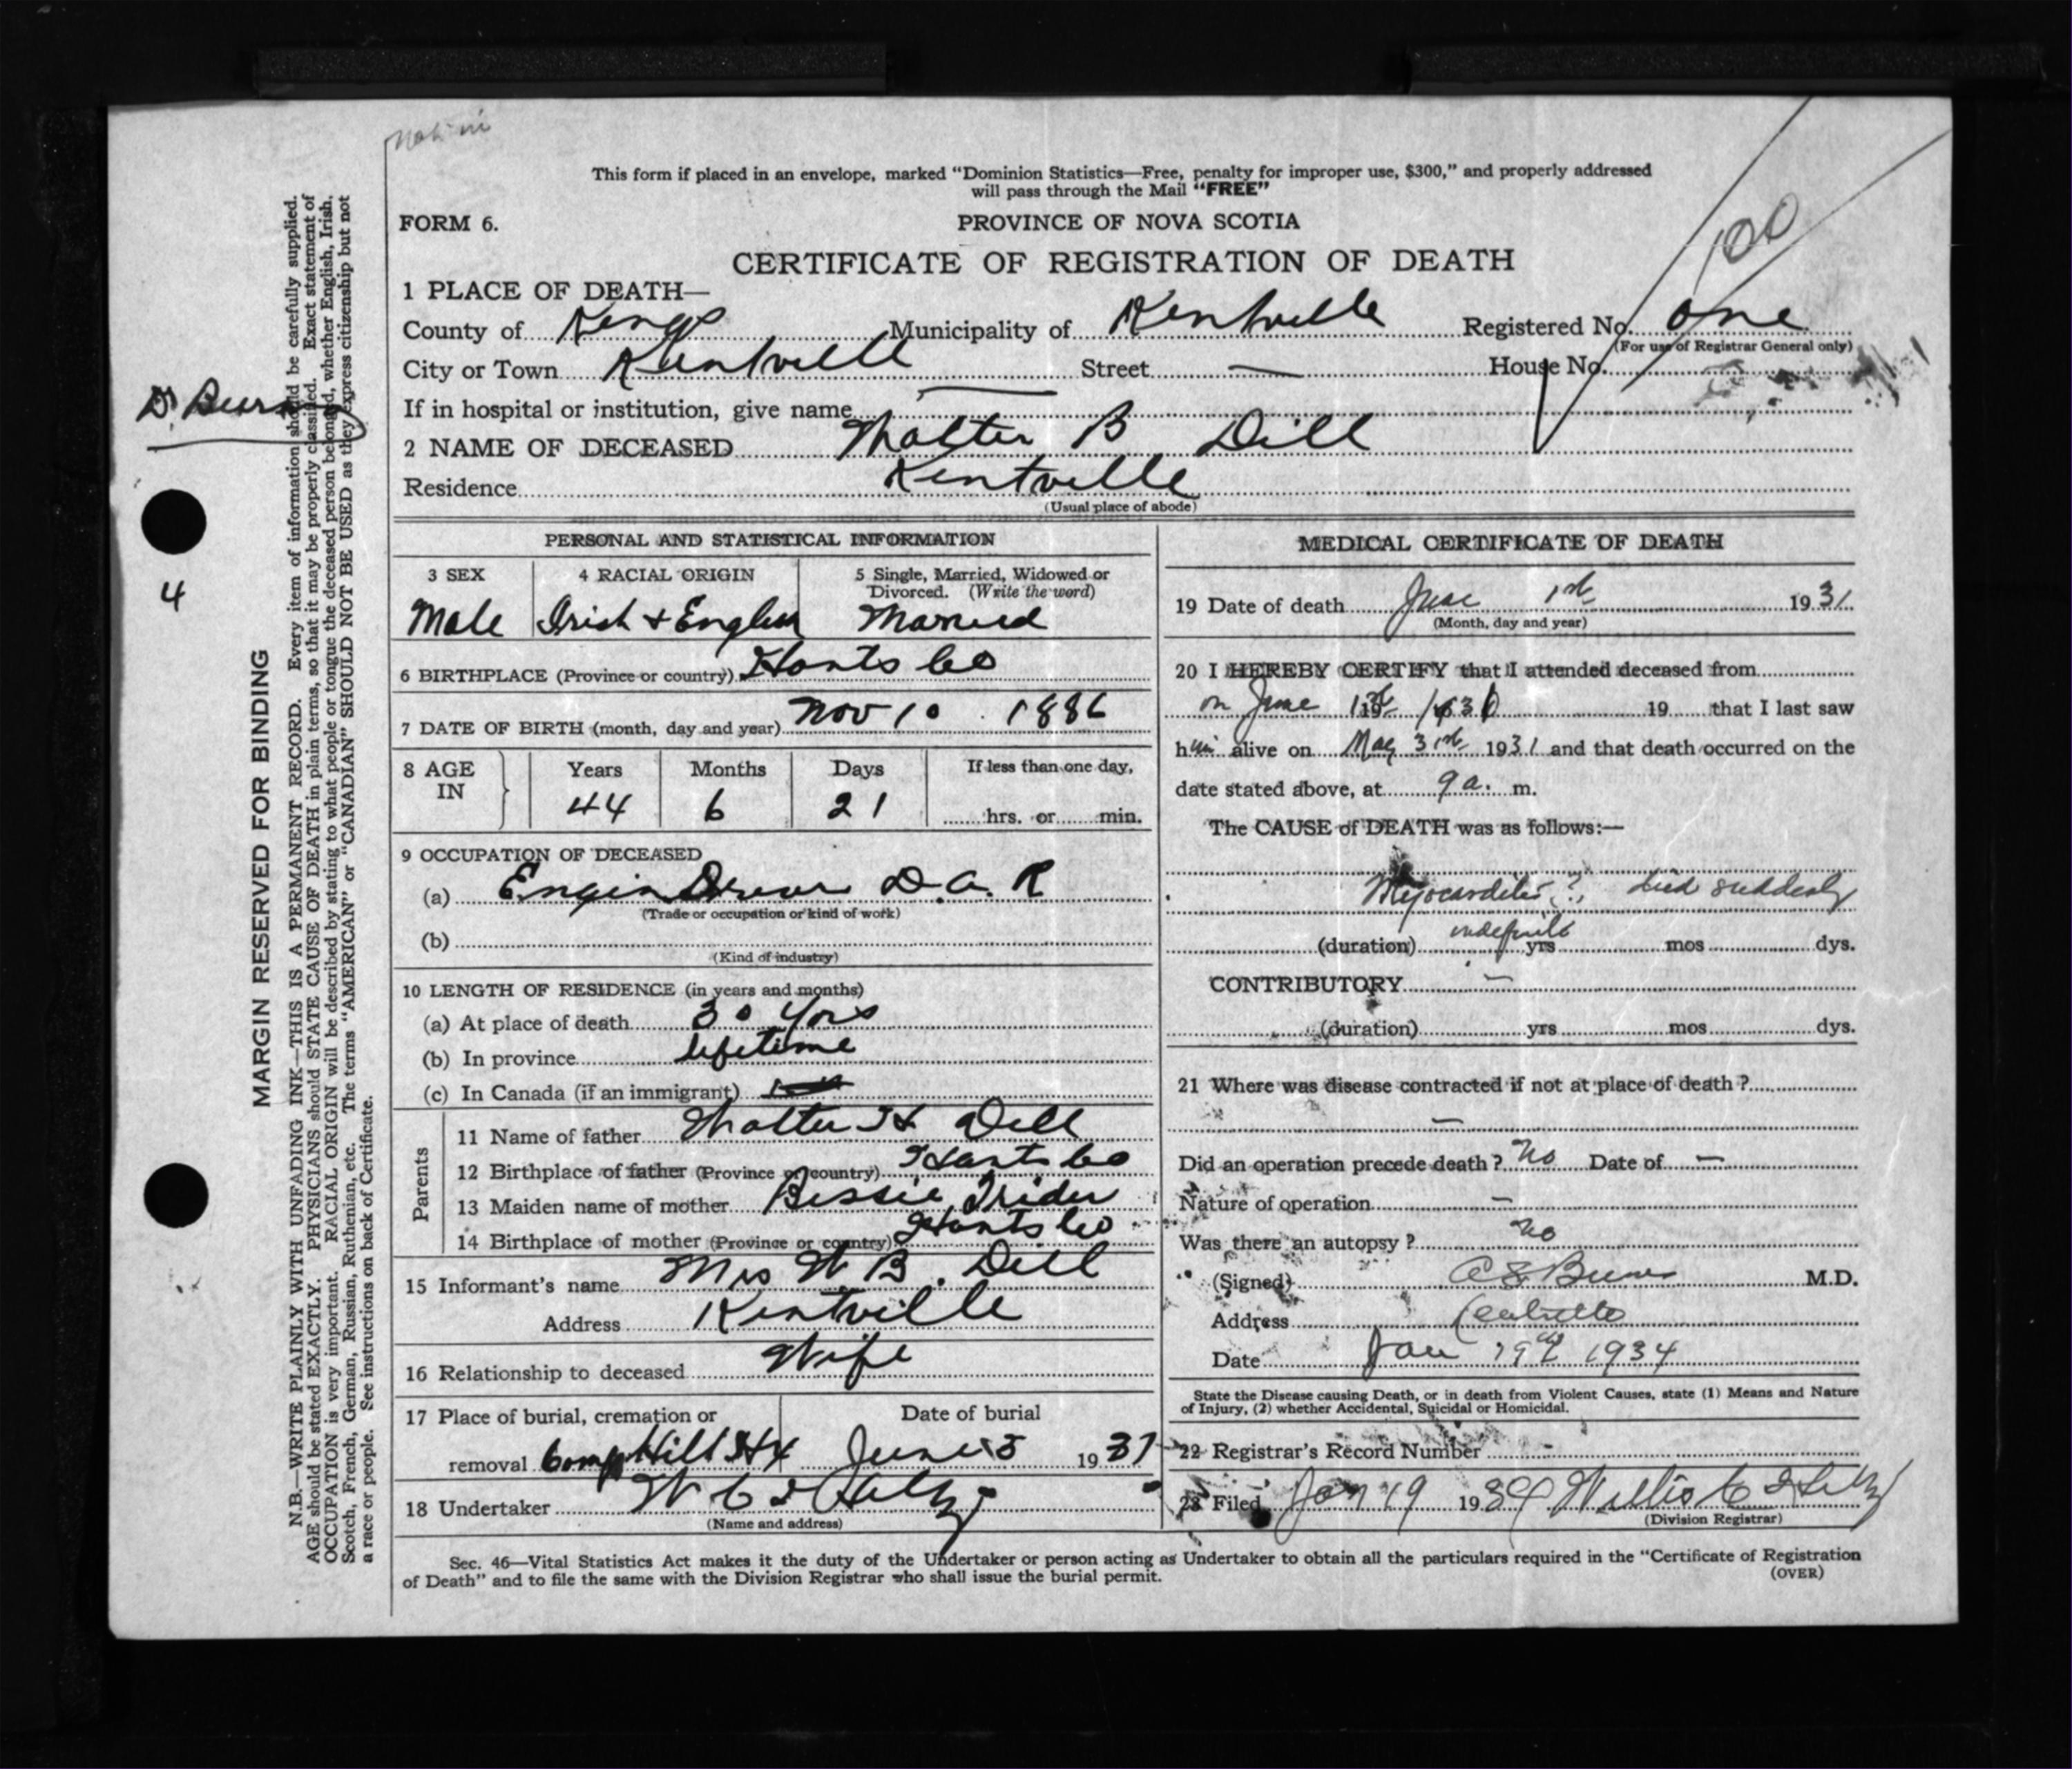 This form if placed in an envelope, marked “Dominion Statistics—Free, penalty for improper use, $300,” and properly addressed
will pass through the Mail “FREE”
FORM 6.
PROVINCE OF NOVA SCOTIA
CERTIFICATE OF REGISTRATION OF DEATH
100
1 PLACE OF DEATH—
County of Kings Municipality of Kentville Registered No. One
(For use of Registrar General only)
City or Town Kentville Street — House No.
If in hospital or institution, give name —
2 NAME OF DECEASED Walter B Dill
Residence Kentville
(Usual place of abode)
PERSONAL AND STATISTICAL INFORMATION
3 SEX 4 RACIAL ORIGIN 5 Single, Married, Widowed or
Divorced. (Write the word)
Male Irish + English Married
6 BIRTHPLACE (Province or country) Hants Co
7 DATE OF BIRTH (month, day and year) Nov 10 1886
8 AGE IN Years Months Days If less than one day,
44 6 21 hrs. or min.
9 OCCUPATION OF DECEASED
(a) Engin Driver D. A. R
(Trade or occupation or kind of work)
(b)
(Kind of industry)
10 LENGTH OF RESIDENCE (in years and months)
(a) At place of death 30 Yrs
(b) In province lifetime
(c) In Canada (if an immigrant)
Parents
11 Name of father Walter H Dill
12 Birthplace of father (Province or country) Hants Co
13 Maiden name of mother Bessie Trider
14 Birthplace of mother (Province or country) Hants Co
15 Informant's name Mrs W B. Dill
Address Kentville
16 Relationship to deceased Wife
17 Place of burial, cremation or Date of burial
removal Camp Hill Hx June 3 1931
18 Undertaker W C
(Name and address)
MEDICAL CERTIFICATE OF DEATH
19 Date of death June 1st 1931
(Month, day and year)
20 I HEREBY CERTIFY that I attended deceased from
on June 1st 19 that I last saw
him alive on May 31st 1931 and that death occurred on the
date stated above, at 9 a. m.
The CAUSE of DEATH was as follows:—
Myocarditis?, died suddenly
(duration) indefinite yrs mos dys.
CONTRIBUTORY —
(duration) yrs mos dys.
21 Where was disease contracted if not at place of death ?
—
Did an operation precede death ? No Date of —
Nature of operation —
Was there an autopsy ? No
(Signed) M.D.
Address Kentville
Date Jan 19th 1934
State the Disease causing Death, or in death from Violent Causes, state (1) Means and Nature
of Injury, (2) whether Accidental, Suicidal or Homicidal.
22 Registrar's Record Number
23 Filed Jan 19 1934 Willis C
(Division Registrar)
Sec. 46—Vital Statistics Act makes it the duty of the Undertaker or person acting as Undertaker to obtain all the particulars required in the “Certificate of Registration
of Death” and to file the same with the Division Registrar who shall issue the burial permit.
(OVER)
4
MARGIN RESERVED FOR BINDING
N.B.—WRITE PLAINLY WITH UNFADING INK—THIS IS A PERMANENT RECORD. Every item of information should be carefully supplied.
AGE should be stated EXACTLY. PHYSICIANS should STATE CAUSE OF DEATH in plain terms, so that it may be properly classified. Exact statement of
OCCUPATION is very important. RACIAL ORIGIN will be described by stating to what people or tongue the deceased person belonged, whether English, Irish,
Scotch, French, German, Russian, Ruthenian, etc. The terms “AMERICAN” or “CANADIAN” SHOULD NOT BE USED as they express citizenship but not
a race or people. See instructions on back of Certificate.